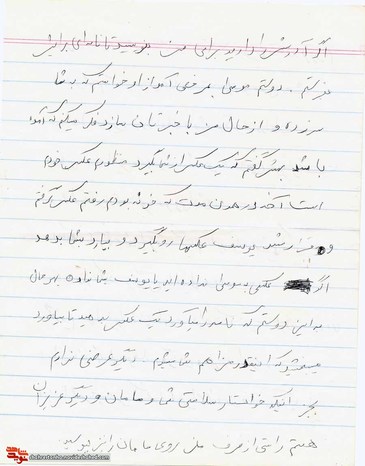 اگر آدرسش را دارید برای من بنویسید تا نامه‌ای برایش
بنویسم. دوستم موسی به مرخصی آمد از او خواستم که به شما
سر زده و از حال من با خبرتان سازد فکر میکنم که آمده
باشد بهش گفتم که یک عکس از شما بگیرد منظورم عکس خودم
است آخه در همون مدت که خونه بودم رفتم عکس گرفتم
و یوسف عکسها رو بگیرد و بیارد شما بدهد
اگر عکسی به موسی نداده اید یا یوسف شما نداده بهر حال
به این دوستم که نامه را میاورد یک عکس بدهید تا بیاورد
میبخشید که اینقدر مزاحم شما میشوم. دیگر عرضی ندارم
بجز اینکه خواستار سلامتی شما و مامان و دیگر عزیزان
هستم راستی از طرف من روی مامان را ببوسید.